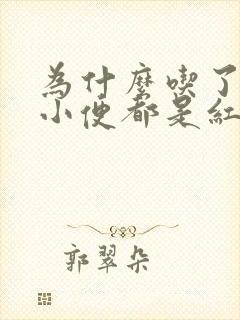 為什麼喫了
小便都是紅
郭翠朵